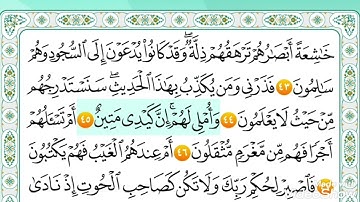 خَٰشِعَةً أَبْصَٰرُهُمْ تَرْهَقُهُمْ ذِلَّةٌ ۖ وَقَدْ كَانُوا۟ يُدْعَوْنَ إِلَى ٱلسُّجُودِ وَهُمْ
سَٰلِمُونَ ٤٣ فَذَرْنِى وَمَن يُكَذِّبُ بِهَٰذَا ٱلْحَدِيثِ ۖ سَنَسْتَدْرِجُهُم
مِّنْ حَيْثُ لَا يَعْلَمُونَ ٤٤ وَأُمْلِى لَهُمْ ۚ إِنَّ كَيْدِى مَتِينٌ ٤٥ أَمْ تَسْـَٔلُهُمْ
أَجْرًا فَهُم مِّن مَّغْرَمٍ مُّثْقَلُونَ ٤٦ أَمْ عِندَهُمُ ٱلْغَيْبُ فَهُمْ يَكْتُبُونَ
٤٧ فَٱصْبِرْ لِحُكْمِ رَبِّكَ وَلَا تَكُن كَصَاحِبِ ٱلْحُوتِ إِذْ نَادَىٰ